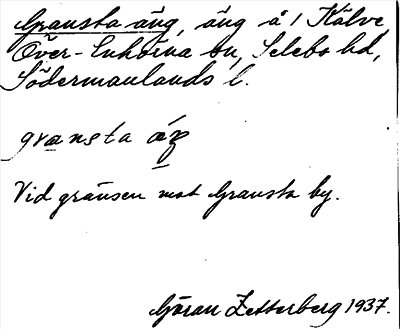 Gransta äng, äng å 1 Kälve,
Över-Enhörna sn, Selebo hd,
Södermanlands l.
gransta áŋ
Vid gränsen mot Gransta by.
Göran Zetterberg 1937.